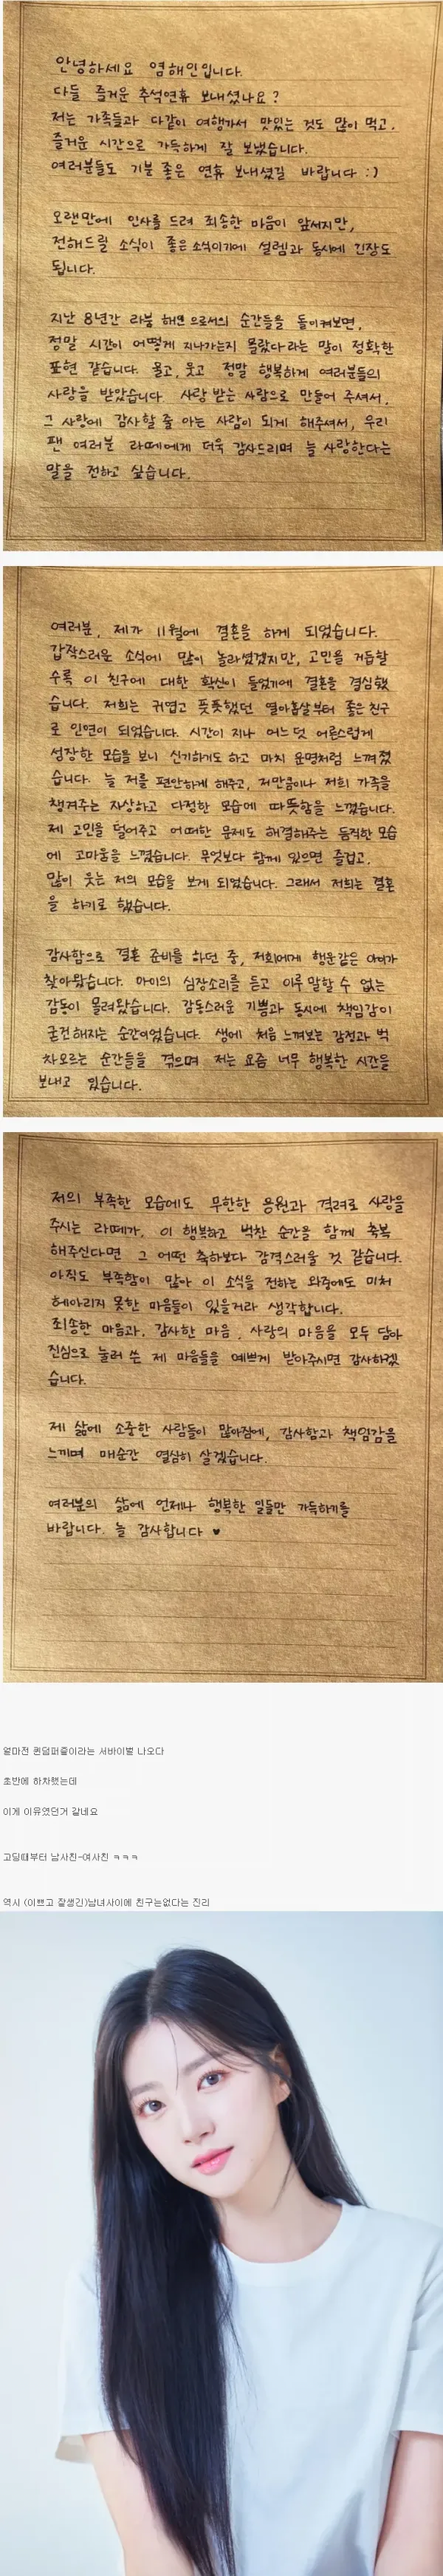 안녕하세요 염해인입니다.
다들 즐거운 추석연휴 보내셨나요?
저는 가족들과 다같이 여행가서 맛있는 것도 많이 먹고,
즐거운 시간으로 가득하게 잘 보냈습니다.
여러분들도 기분 좋은 연휴 보내셨길 바랍니다 :)
오랜만에 인사를 드려 죄송한 마음이 앞서지만,
전해드릴 소식이 좋은 소식이기에 설렘과 동시에 긴장도
됩니다.
지난 8년간 라붐 해인으로서의 순간들을 돌이켜보면,
정말 시간이 어떻게 지나가는지 몰랐다라는 말이 정확한
표현 같습니다. 울고, 웃고 정말 행복하게 여러분들의
사랑을 받았습니다. 사랑 받는 사람으로 만들어 주셔서,
그 사랑에 감사할 줄 아는 사람이 되게 해주셔서, 우리
팬 여러분 라떼에게 더욱 감사드리며 늘 사랑한다는
말을 전하고 싶습니다.
여러분, 제가 11월에 결혼을 하게 되었습니다.
갑작스러운 소식에 많이 놀라셨겠지만, 고민을 거듭할
수록 이 친구에 대한 확신이 들었기에 결혼을 결심했
습니다. 저희는 귀엽고 풋풋했던 열아홉살부터 좋은 친구
로 인연이 되었습니다. 시간이 지나 어느덧 어른스럽게
성장한 모습을 보니 신기하기도 하고 마치 운명처럼 느껴졌
습니다. 늘 저를 편안하게 해주고, 저만큼이나 저희 가족을
챙겨주는 자상하고 다정한 모습에 따뜻함을 느꼈습니다.
제 고민을 덜어주고 어떠한 문제도 해결해주는 듬직한 모습
에 고마움을 느꼈습니다. 무엇보다 함께 있으면 즐겁고,
많이 웃는 저의 모습을 보게 되었습니다. 그래서 저희는 결혼
을 하기로 했습니다.
감사함으로 결혼 준비를 하던 중, 저희에게 행운같은 아이가
찾아왔습니다. 아이의 심장소리를 듣고 이루 말할 수 없는
감동이 몰려왔습니다. 감동스러운 기쁨과 동시에 책임감이
굳건해지는 순간이었습니다. 생에 처음 느껴보는 감정과 벅
차오르는 순간들을 겪으며 저는 요즘 너무 행복한 시간을
보내고 있습니다.
저의 부족한 모습에도 무한한 응원과 격려로 사랑을
주시는 라떼가, 이 행복하고 벅찬 순간을 함께 축복
해주신다면 그 어떤 축하보다 감격스러울 것 같습니다.
아직도 부족함이 많아 이 소식을 전하는 와중에도 미처
헤아리지 못한 마음들이 있을거라 생각합니다.
죄송한 마음과, 감사한 마음, 사랑의 마음을 모두 담아
진심으로 눌러 쓴 제 마음들을 예쁘게 받아주시면 감사하겠
습니다.
제 삶에 소중한 사람들이 많아짐에, 감사함과 책임감을
느끼며 매순간 열심히 살겠습니다.
여러분의 삶에 언제나 행복한 일들만 가득하기를
바랍니다. 늘 감사합니다 ♥
얼마전 퀸덤퍼즐이라는 서바이벌 나오다
초반에 하차했는데
이게 이유였던거 같네요
고딩때부터 남사친-여사친 ㅋㅋㅋ
역시 (이쁘고 잘생긴)남녀사이에 친구는없다는 진리